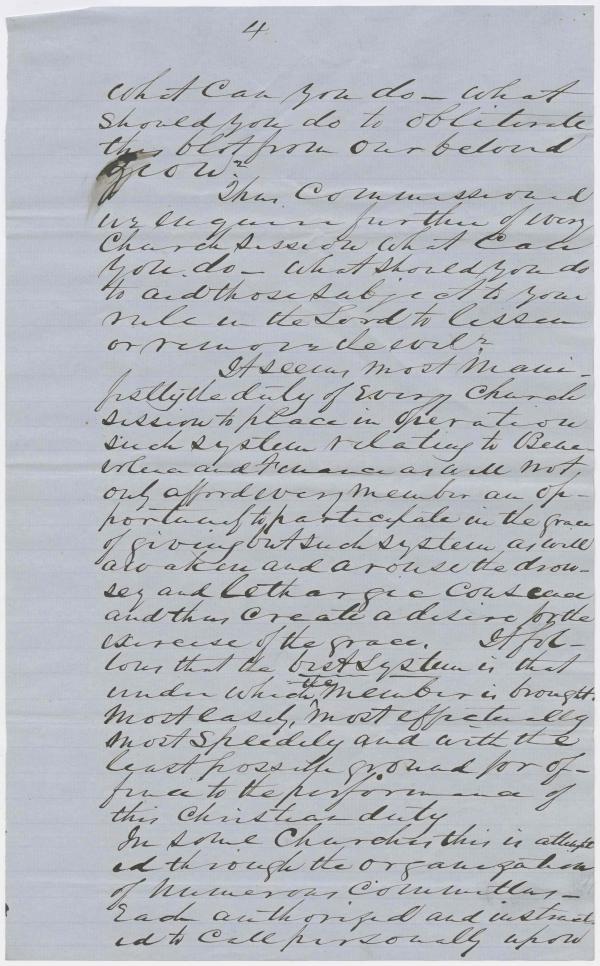 4
What Can you do – What
Should you do to obliterate
this blot from our beloved
Zion?
Thus Commissioned
we enquire further of every
Church Session What Can
you do – What should you do
to aid those subject to your
rule in the Lord to lessen
or remove the evil?
It seems most Mani-
festly the duty of Every Church
Session to place in operation
such system relating to Bene
volence and Finance as will not
only afford every Member an op-
portunity to participate in the grace
of giving but such system as will
awaken and arouse the drow-
sey and lethargic Conscience
and thus Create a desire for the
exercise of the grace. It fol-
lows that the best System is that
under which the Member is brought
Most easely, Most effectually
Most Speedily and with the
least possible ground for of-
fence to the performance of
this Christian duty
In some Churches this is attempt
ed through the organization
of Numerous Committees –
Each authorized and instruct
ed to Call personally upon